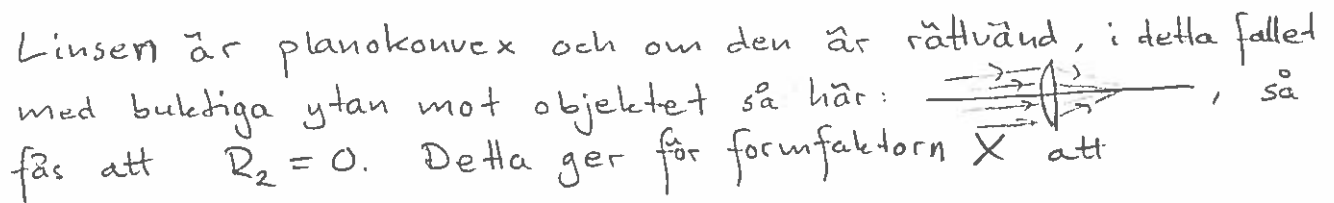 Linsen är planokonvex och om den är rättvänd, i detta fallet
med buktiga ytan mot objektet så här: , så
fås att R₂ = 0. Detta ger för formfaktorn X att